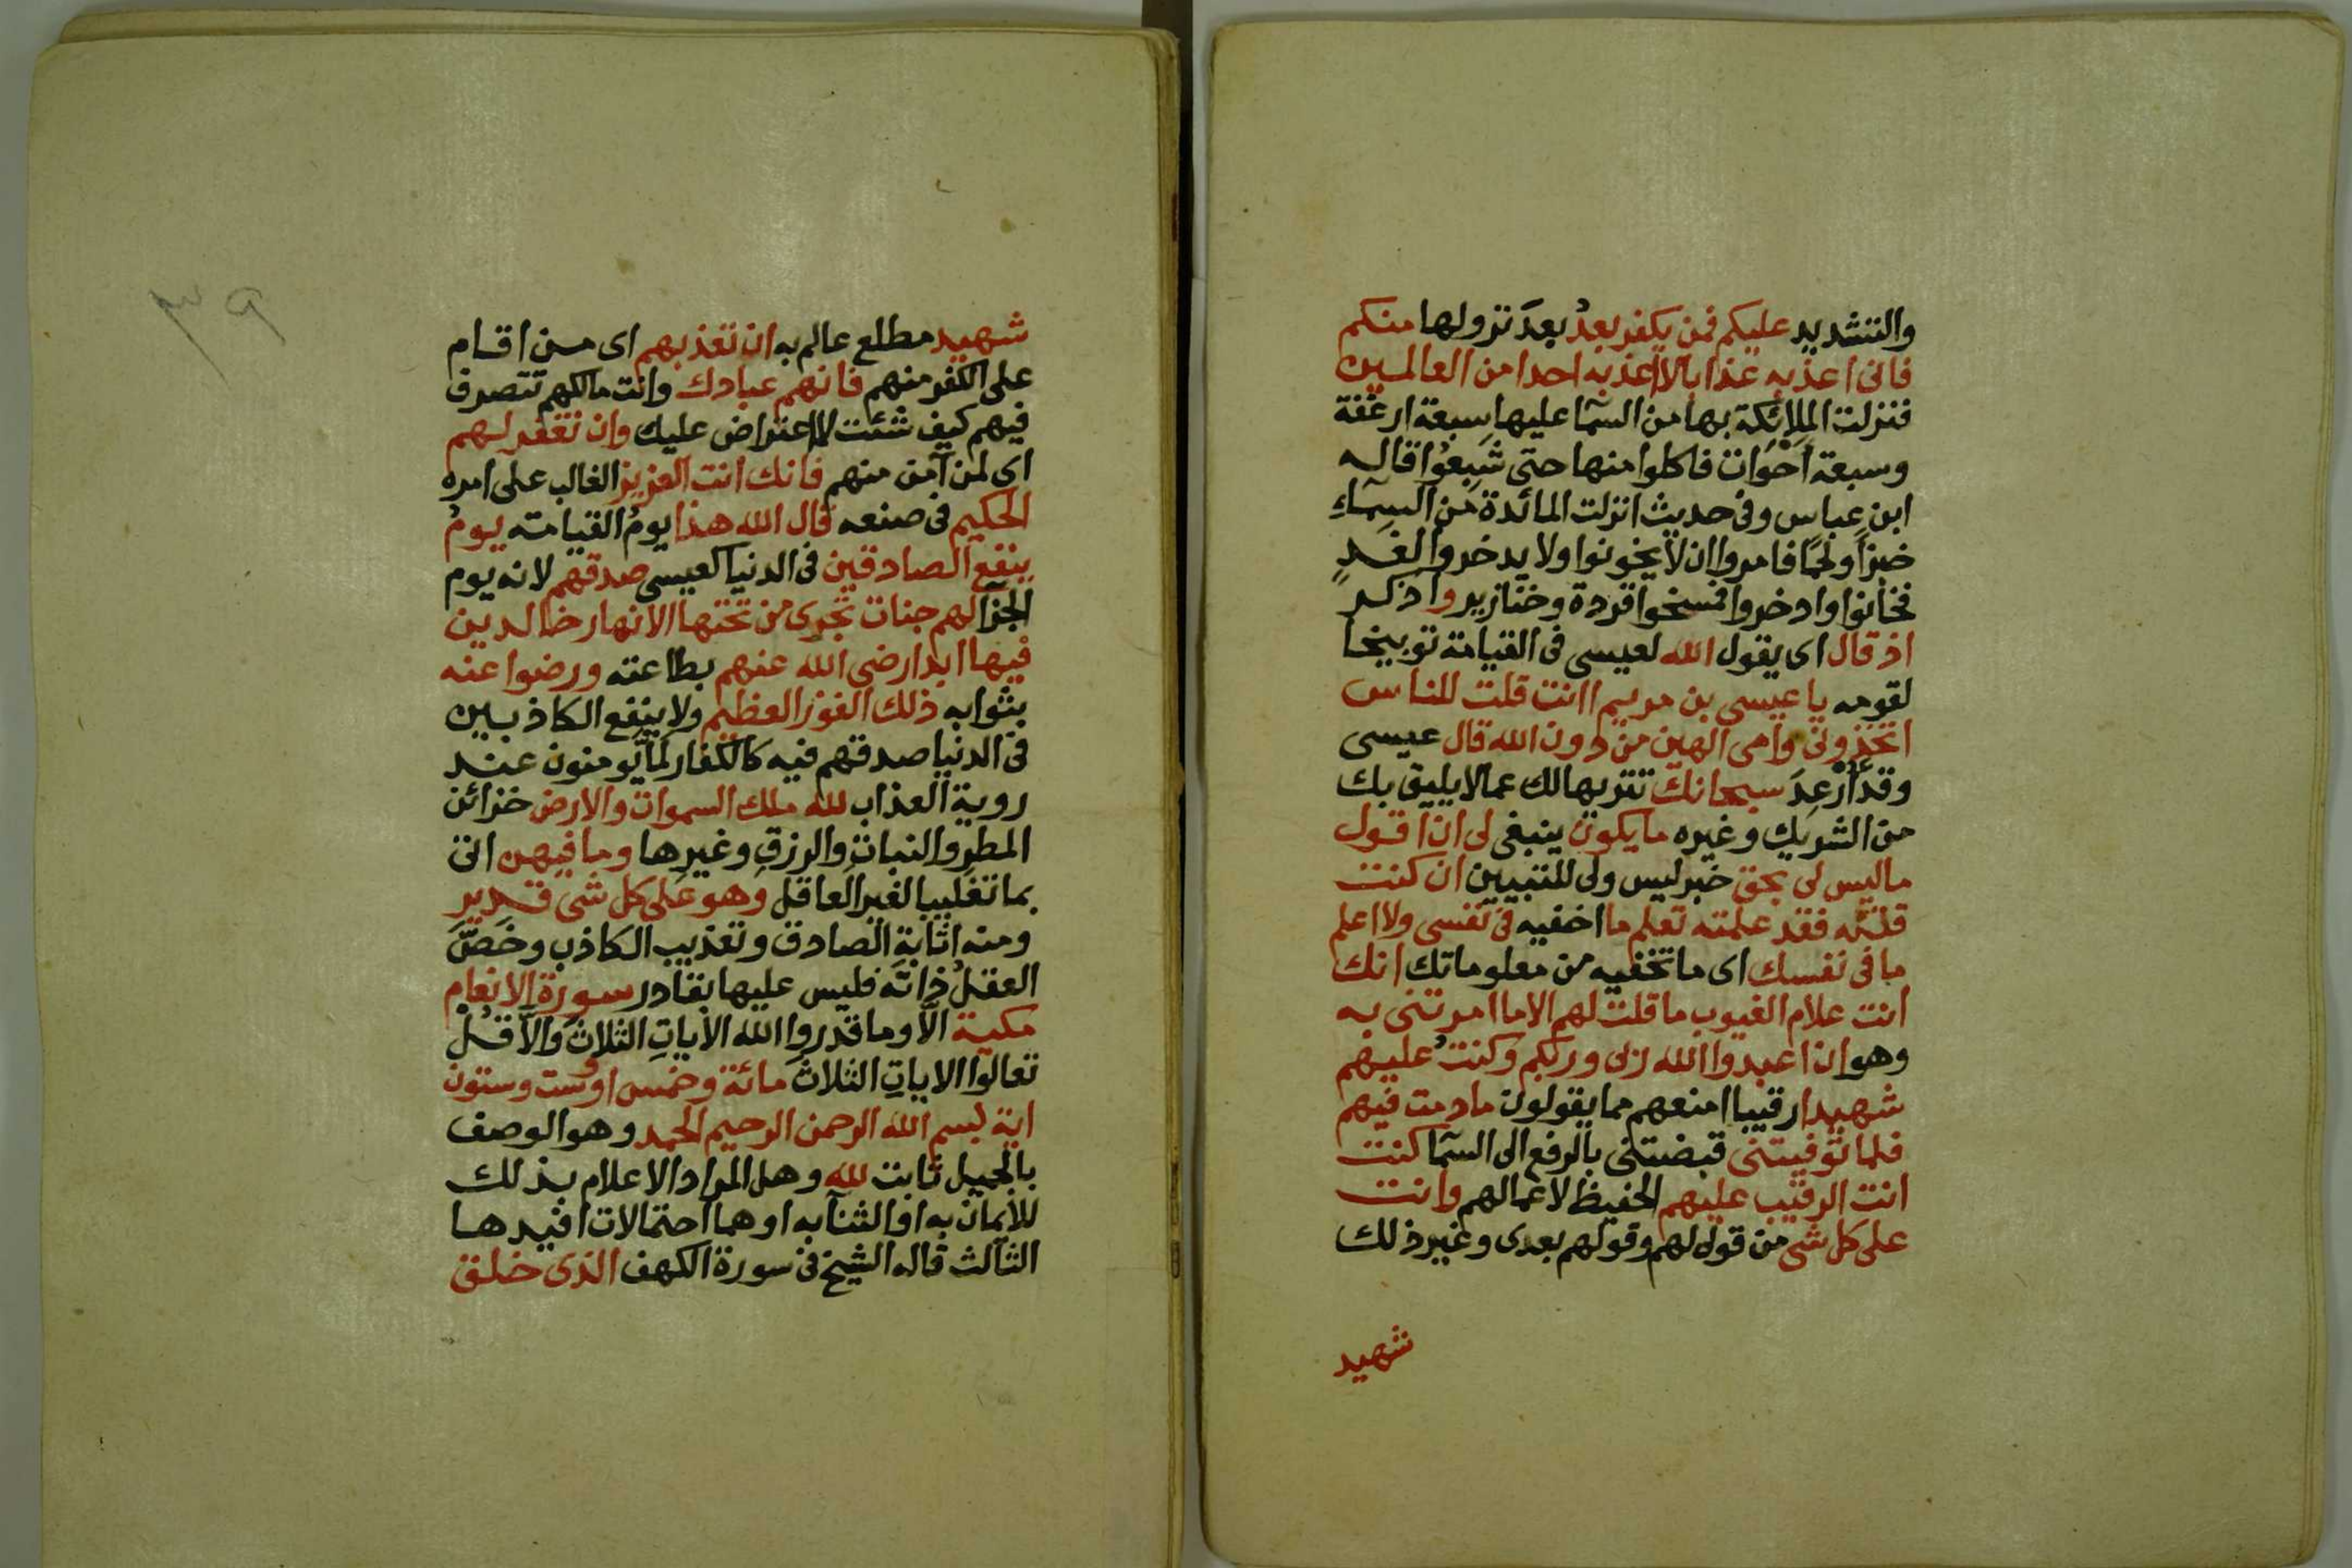 والتشديد عليكم فمن يكفر بعدُ بعدَ نزولها منكم
فانى اعذبه عذابا لا اعذبه احدا من العالمين
فنزلت الملائكة بها من السمآ عليها سبعة ارغفة
وسبعة احوات فاكلوا منها حتى شبِعُوا قاله
ابن عباس وفى حديث انزلت المائدة من السمآءِ
خبزاً ولحمًا فامروا ان لا يخونوا ولا يدخروا لغدٍ
فخانوا وادخروا فمسخوا قردة وخنازير واذكر
اذ قال اى يقول الله لعيسى فى القيامة توبيخا
لقومه يا عيسى بن مريم اانت قلت للناس
اتخذونى وامى الهين من دون الله قال عيسى
وقد اُرْعِدَ سبحانك تنزيها لك عما لا يليق بك
من الشريك وغيره ما يكون ينبغى لى ان اقول
ما ليس لى بحق خبر ليس ولى للتبيين ان كنت
قلته فقد علمته تعلم ما اخفيه فى نفسى ولا اعلم
ما فى نفسك اى ما تخفيه من معلوماتك انك
انت علام الغيوب ما قلت لهم الا ما امرتنى به
وهو ان اعبدوا الله ربى وربكم وكنتُ عليهم
شهيدا رقيبا امنعهم مما يقولون ما دمت فيهم
فلما توفيتنى قبضتنى بالرفع الى السمآ كنت
انت الرقيب عليهم الحفيظ لاعمالهم وانت
على كل شى من قوله لهم وقولهم بعدى وغير ذلك
شهيد
٣٩
شهيد مطلع عالم به ان تعذبهم اى من اقام
على الكفر منهم فانهم عبادك وانت مالكهم تتصرف
فيهم كيف شئت لا اعتراض عليك وان تغفر لهم
اى لمن آمن منهم فانك انت العزيز الغالب على امره
الحكيم فى صنعه قال الله هذا يومُ القيامة يومُ
ينفع الصادقين فى الدنيا كعيسى صدقهم لانه يوم
الجزآ لهم جنات تجرى من تحتها الانهار خالدين
فيها ابدا رضى الله عنهم بطاعته ورضوا عنه
بثوابه ذلك الفوز العظيم ولا ينفع الكاذبين
فى الدنيا صدقهم فيه كالكفار لما يومنون عند
روية العذاب لله ملك السموات والارض خزائن
المطرِ والنباتِ والرزقِ وغيرِها وما فيهن اتى
بما تغليبا لغير العاقل وهو على كل شى قدير
ومنه اثابة الصادق وتعذيب الكاذب وخَصَّ
العقلُ ذاتَه فليس عليها بقادر سورة الانعام
مكية الآ وما قدروا الله الأياتِ الثلاثَ والآ قُلْ
تعالوا الاياتِ الثلاثَ مائة وخمس او وست وستون
اية بسم الله الرحمن الرحيم الحمد وهو الوصف
بالجميل ثابت لله وهل المراد الاعلام بذلك
للايمان به او الثنآ به او هما احتمالات افيدها
الثالث قاله الشيخ فى سورة الكهف الذى خلق